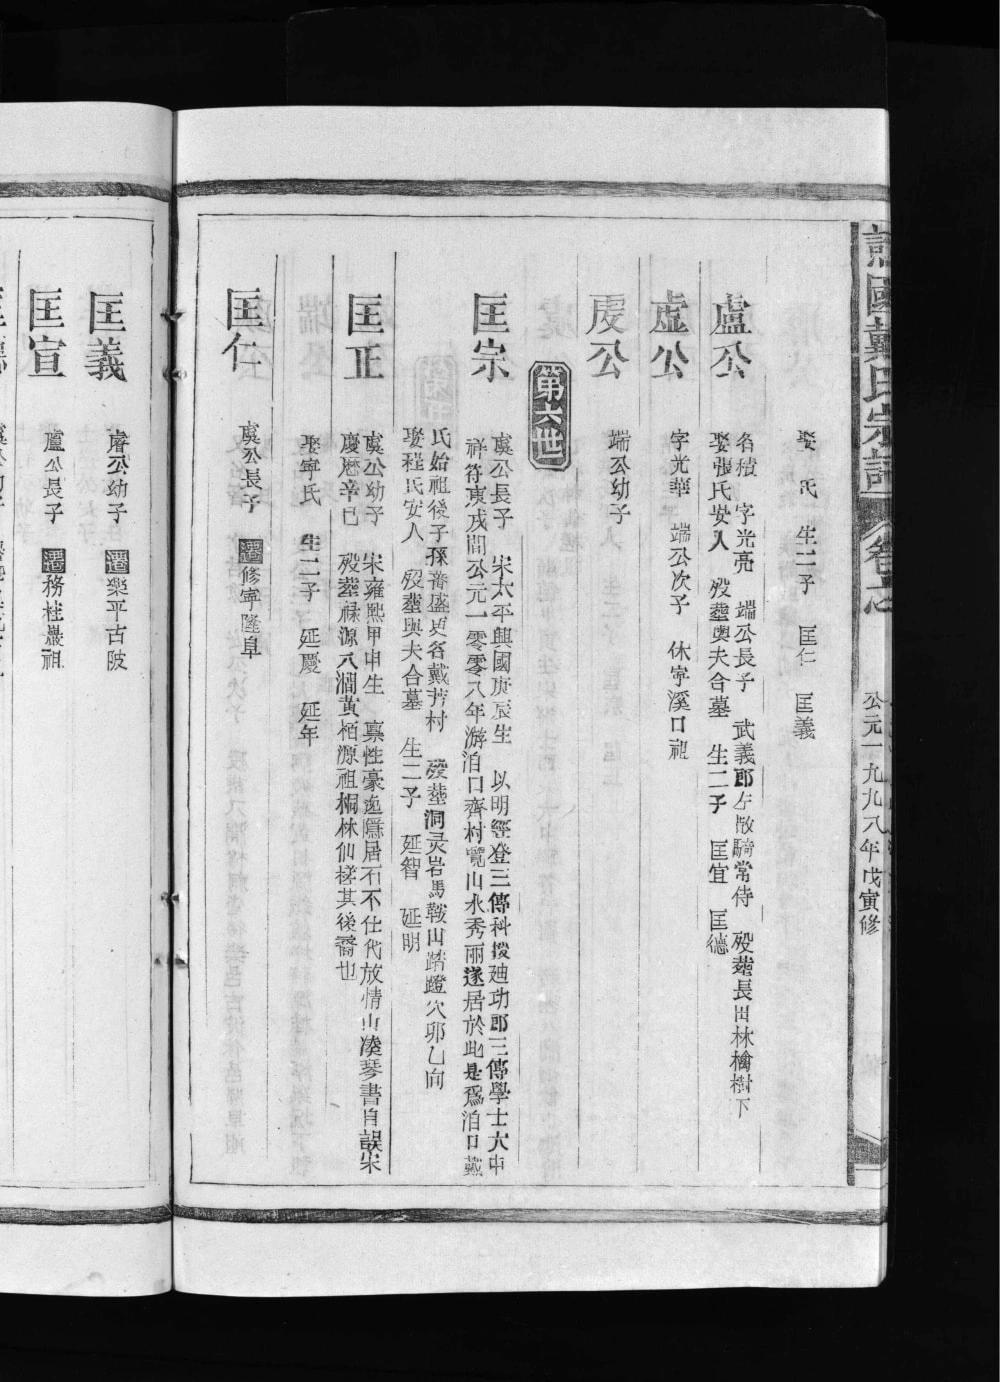 譙國戴氏宗譜
卷之
公元一九九八年戊寅修
娶 氏 生二子 匡仁 匡義
盧公
名積 字光亮 端公長子 武義郎左散騎常侍 殁塟長田林檎樹下
娶張氏安人 殁塟與夫合墓 生二子 匡宜 匡德
虛公
字光華 端公次子 休寧溪口祖
虔公
端公幼子
第六世
匡宗
虞公長子 宋太平興國庚辰生 以明經登三傳科授廸功郎三傳學士大中
祥符庚戌間公元一零零八年游泊口齊村覽山水秀丽遂居於此是爲泊口戴
氏始祖後子孫蕃盛更名戴芳村 殁塟洞灵岩馬鞍山踏蹬穴卯乙向
娶程氏安人 殁塟與夫合墓 生二子 延智 延明
匡正
虞公幼子 宋雍熙甲申生 禀性豪逸隱居不仕代放情山湊琴書自誤宋
慶曆辛巳 殁塟祿源八澗黃栢源祖桐林仙槎其後裔也
娶寧氏 生二子 延慶 延年
匡仁
虞公長子 遷修寧隆阜
匡義
睿公幼子 遷樂平古陂
匡宣
盧公長子 遷務桂巖祖